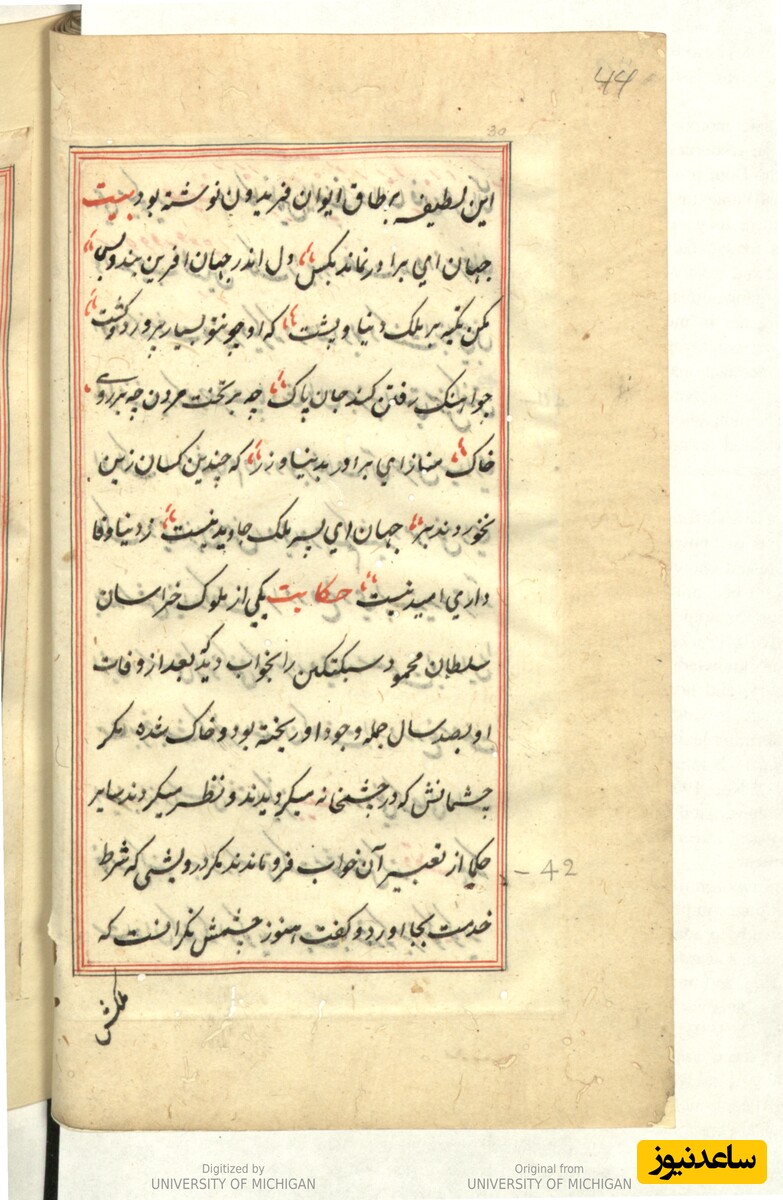 44
30
این لطیفه بر طاق ایوان فریدون نوشته بود بیت
جهان ای برادر نماند بکس دل اندر جهان افرین بند و بس
مکن تکیه بر ملک دنیا و پشت که او چونتو بسیار پرورد و کشت
چو اهنک رفتن کند جان پاک چه بر تخت مردن چه بر روی
خاک مناز ای برادر بدنیا و زر که چندین کسان زین
نخوردند بر جهان ای پسر ملک جاوید نیست ز دنیا وفا
داری امید نیست حکایت یکی از ملوک خراسان
سلطان محمود سبکتکین را بخواب دید بعد از وفات
او بصد سال جمله وجود او ریخته بود و خاک شده مکر
چشمانش که در چشمخانه میکردیدند و نظر میکردند سایر
حکما از تعبیر آن خواب فرو ماندند مکر درویشی که شرط
خدمت بجا اورد و کفت هنوز چشمش نکرانست که
ملکش
42
Digitized by
UNIVERSITY OF MICHIGAN
Original from
UNIVERSITY OF MICHIGAN
ساعدنیوز